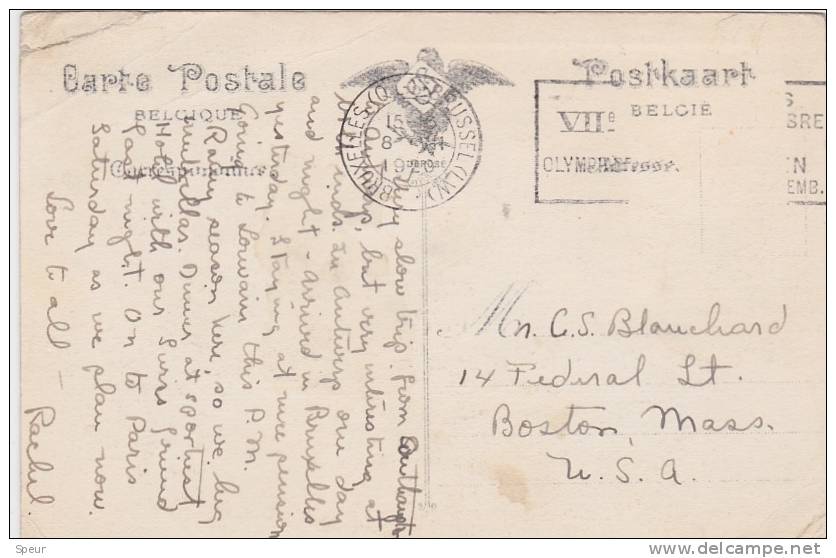 Carte Postale
BELGIQUE
Correspondance
Postkaart
BELGIË
Adresse.
BRUXELLES (Q.L.) BRUSSEL (L.W.)
15
8
1920
DÉPOSÉ
VIIe
OLYMPIADE
BRE
EN
EMB.
very slow trip from Southampton
but very interesting at
winds. In Antwerp one day
and night - arrived in Bruxelles
yesterday. Staying at nice pension
Going to Louvain this P.M.
Rainy season here, so we hug
umbrellas. Dinner at sportiest
Hotel with our Swiss friend
last night. On to Paris
Saturday as we plan now.
Love to all —
Rachel.
Mr. C. S. Blanchard
14 Federal St.
Boston, Mass.
U. S. A.
Speur
www.delcampe.net